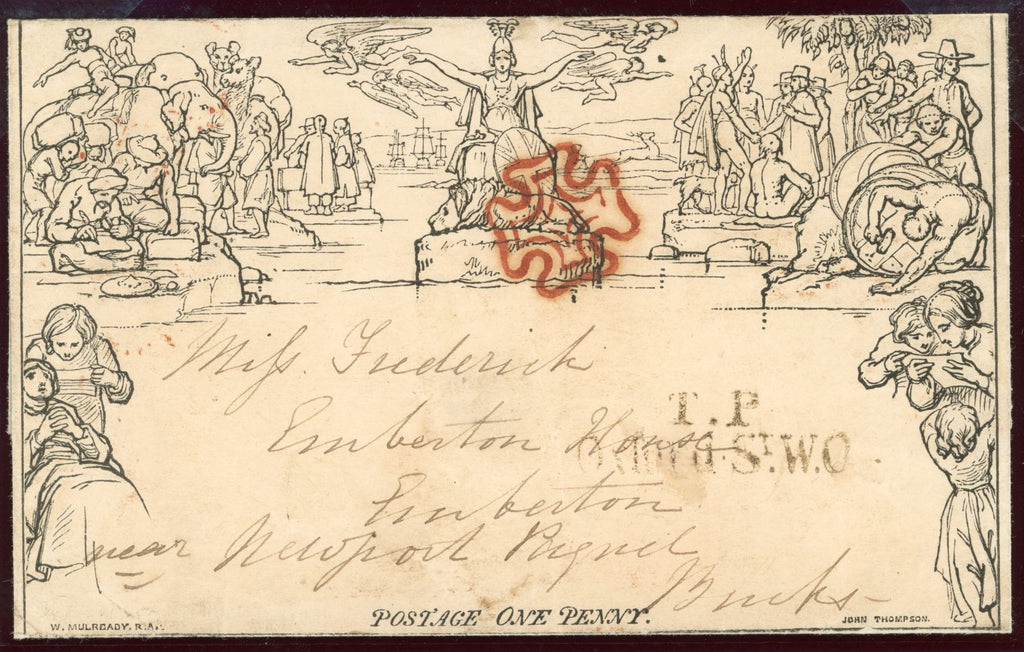 Miss. Frederick
Emberton House
Emberton
near Newport Pagnel
Bucks
T.P
St. W.O
POSTAGE ONE PENNY.
W. MULREADY, R.A.
JOHN THOMPSON.